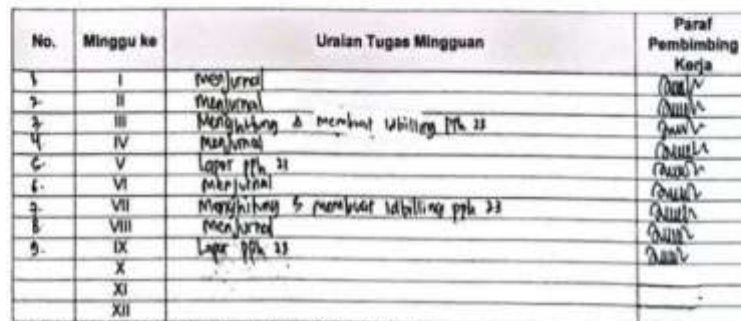 No. Minggu ke Uraian Tugas Mingguan Paraf Pembimbing Kerja
1. I Menjurnal
2. II Menjurnal
3. III Menghitung & membuat idbilling PPh 23
4 IV Menjurnal
5. V Lapor pph 21
6. VI Menjurnal
7. VII Menghitung & membuat idbilling pph 23
8 VIII Menjurnal
9. IX Lapor pph 23
X
XI
XII